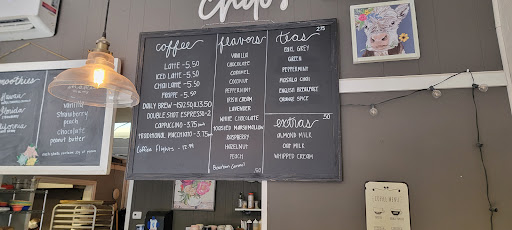 coffee
LATTE - 5.50
ICED LATTE - 5.50
CHAI LATTE - 5.50
FRAPPE - 5.50
DOUBLE SHOT ESPRESSO - 2
CAPPUCCINO - 3.75
TRADITIONAL MACCHIATO - 3.75
coffee flights - 12.99
flavors
VANILLA
CHOCOLATE
CARAMEL
COCONUT
PEPPERMINT
IRISH CREAM
LAVENDER
WHITE CHOCOLATE
TOASTED MARSHMALLOW
RASPBERRY
HAZELNUT
PEACH
Bourbon Caramel
.50
teas 2.75
EARL GREY
GREEN
PEPPERMINT
MASALA CHAI
ENGLISH BREAKFAST
ORANGE SPICE
extras .50
ALMOND MILK
OAT MILK
WHIPPED CREAM
smoothies
vanilla
Strawberry
peach
chocolate
peanut butter